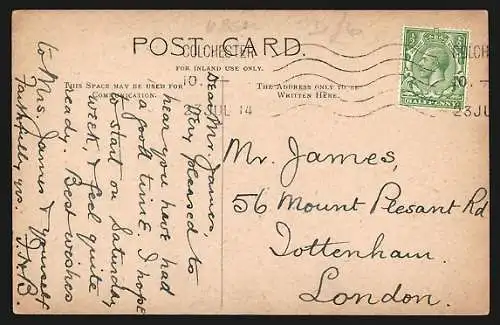 POST CARD.
FOR INLAND USE ONLY.
THIS SPACE MAY BE USED FOR
COMMUNICATION.
THE ADDRESS ONLY TO BE
WRITTEN HERE.
COLCHESTER
10
JUL 14
COLCHESTER
10.
23 JU
HALFPENNY
Dear Mr. James,
Very pleased to
hear you have had
a good time I hope
to start on Saturday
week, & feel quite
ready. Best wishes
to Mrs. James & yourself
Faithfully yrs. F.A.B.
Mr. James,
56 Mount Plesant Rd
Tottenham.
London.